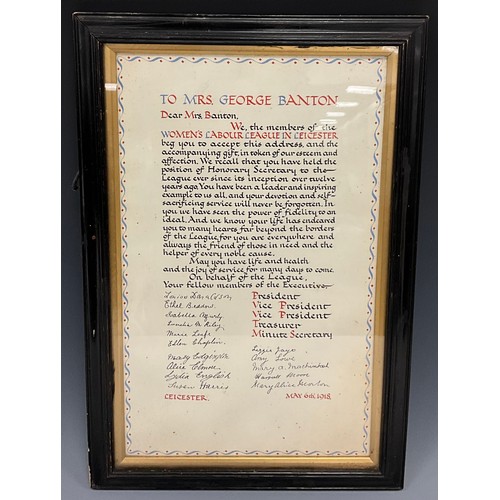 TO MRS. GEORGE BANTON
Dear Mrs. Banton,
We, the members of the
WOMEN'S LABOUR LEAGUE IN LEICESTER
beg you to accept this address, and the
accompanying gift, in token of our esteem and
affection. We recall that you have held the
position of Honorary Secretary to the
League ever since its inception over twelve
years ago. You have been a leader and inspiring
example to us all, and your devotion and self-
sacrificing service will never be forgotten. In
you we have seen the power of fidelity to an
ideal. And we know your life has endeared
you to many hearts far beyond the borders
of the League, for you are everywhere and
always the friend of those in need and the
helper of every noble cause.
May you have life and health
and the joy of service for many days to come.
On behalf of the League,
Your fellow members of the Executive,
President
Ethel Vice President
Isabella Vice President
Riley Treasurer
Minnie Minute Secretary
Ellen Chaplin Lizzie
Amy Lowe
Alice Mary A.
Lydia Hannah
Susan Harris Mary Alice
LEICESTER. MAY 6th, 1918.